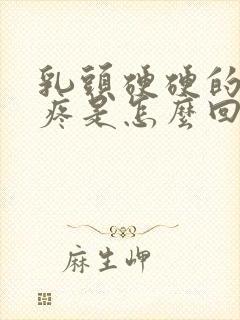 乳頭硬硬的
疼是怎麼回
麻生岬